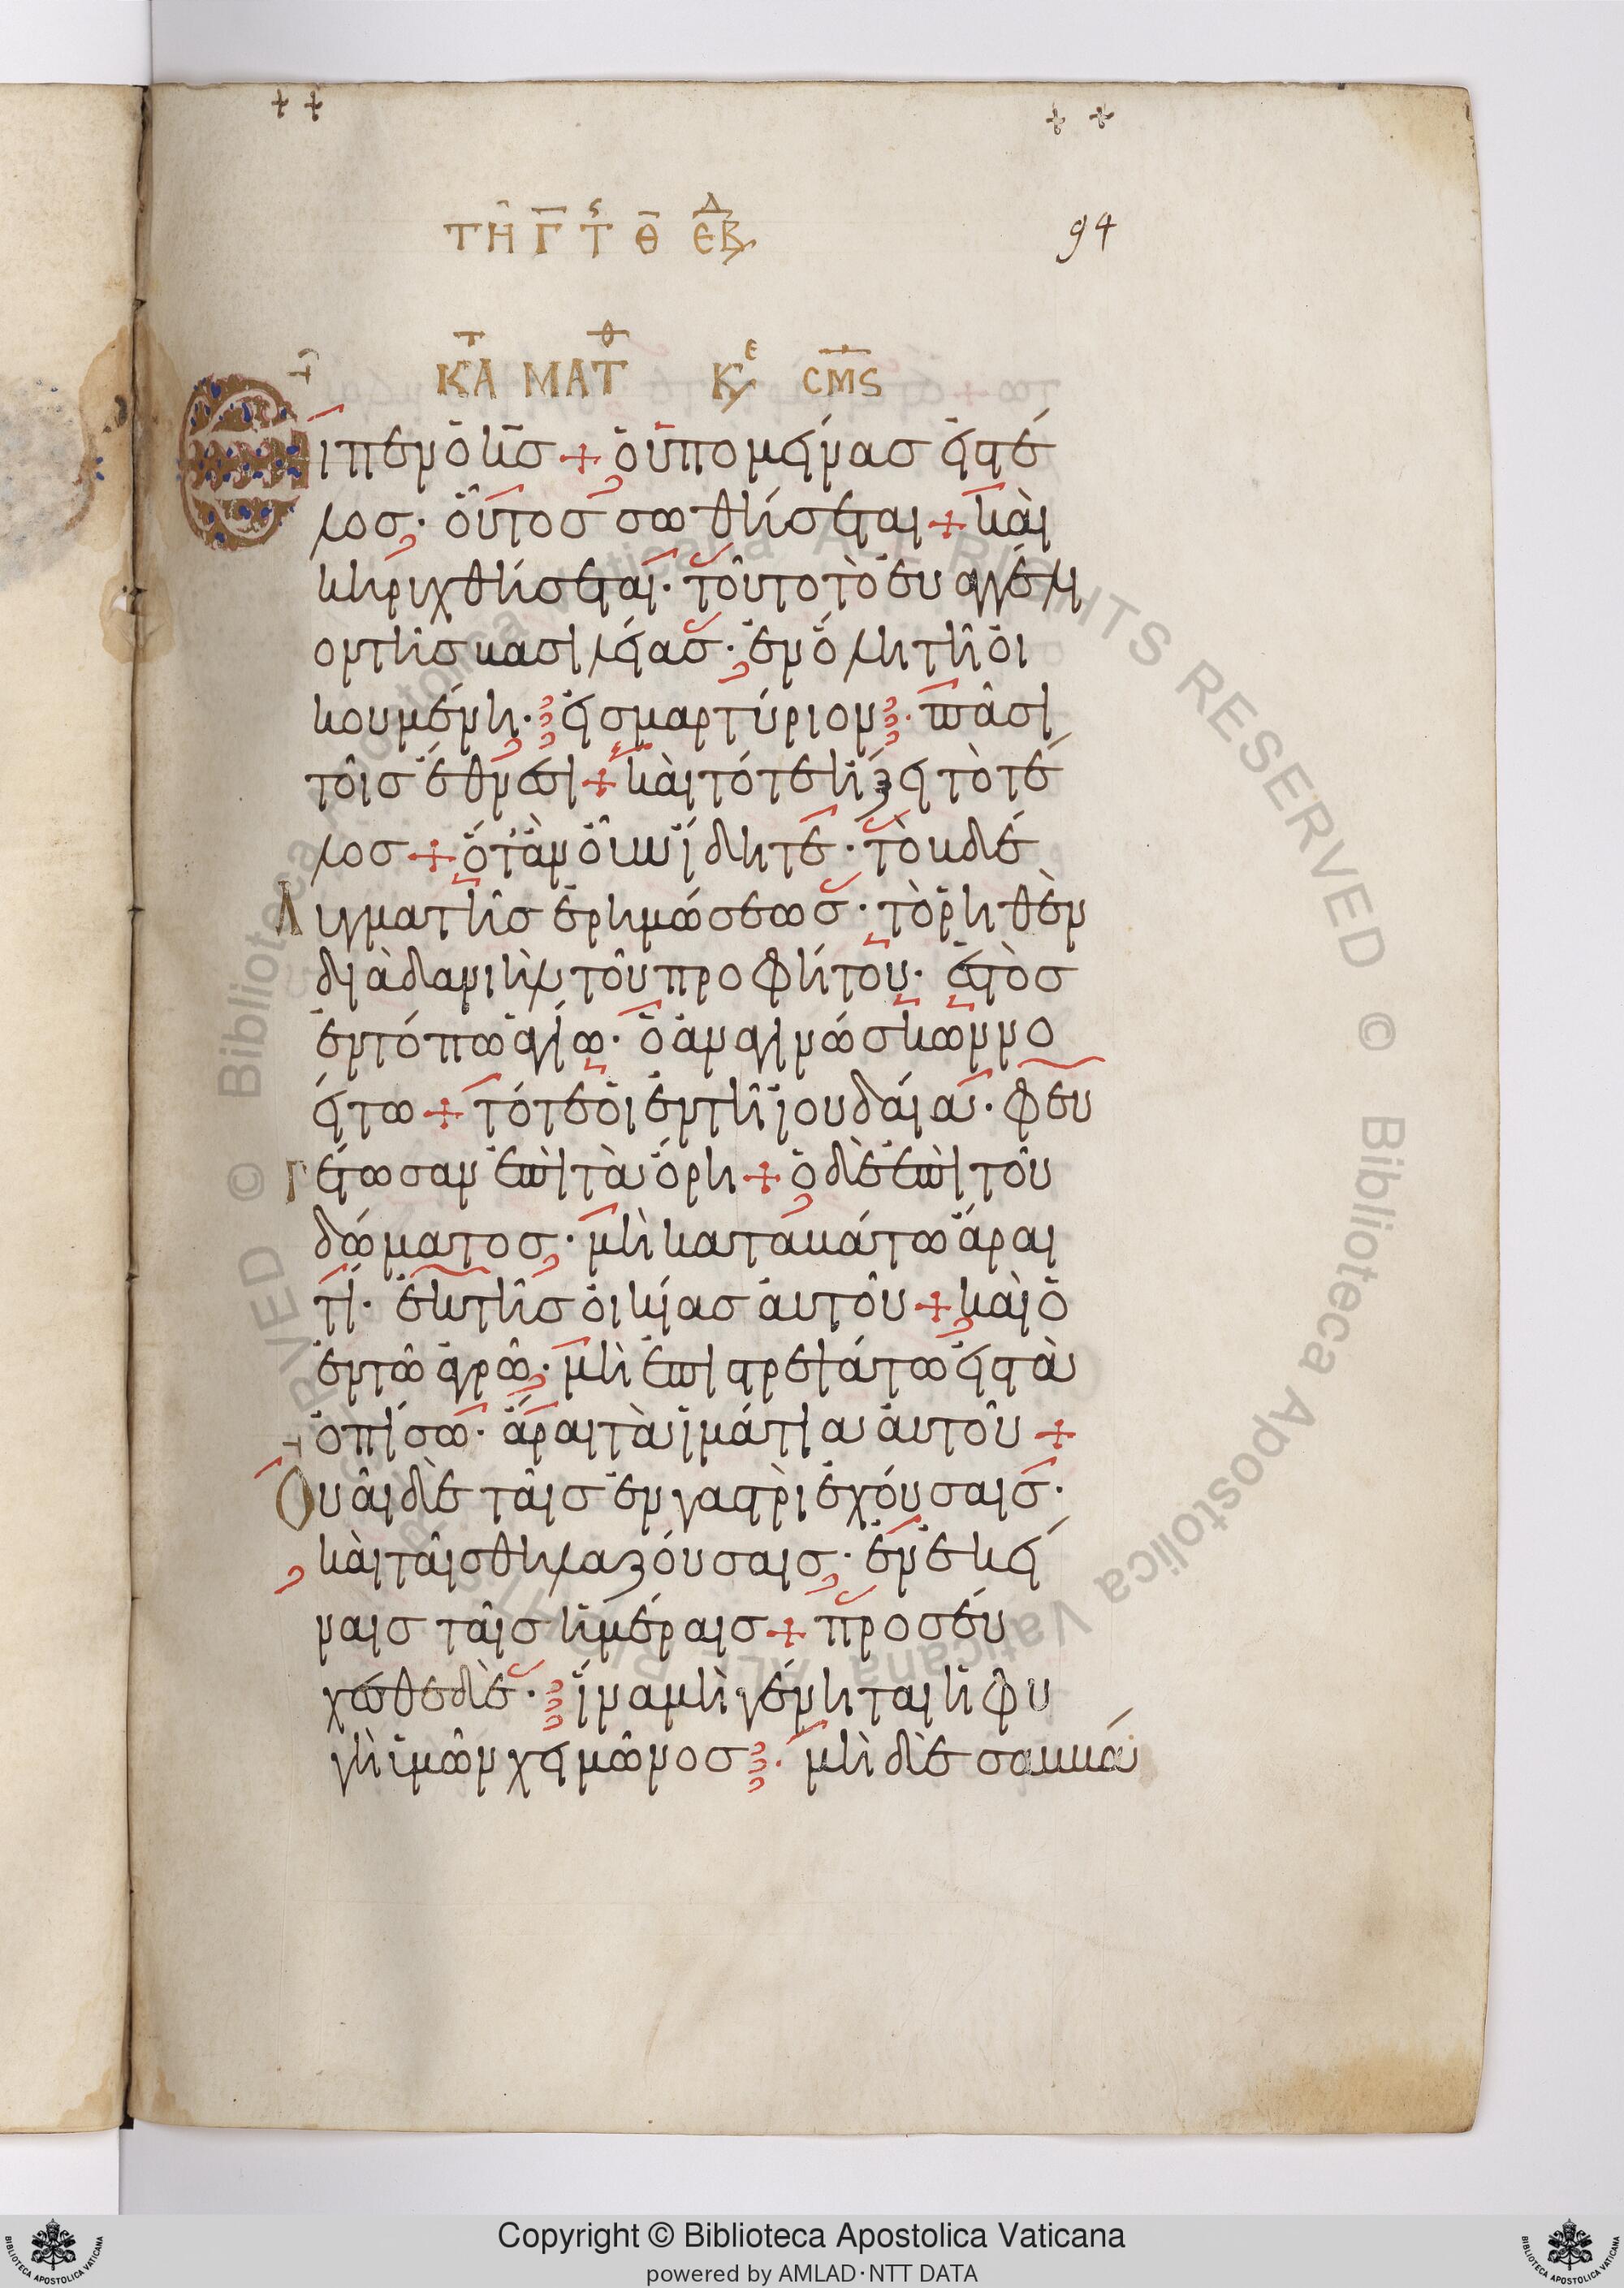 ΤΗ Γ Τς Θ ΕΒΔ
94
ΚΑΤ ΜΑΤΘ Κε ϹΜϚ
Εἶπεν ὁ κς + ὁ ὑπομείνας εἰς τέ
λος· οὗτος σωθήσεται + καὶ
κηρυχθήσεται· τοῦτο τὸ ευαγγέλι
ον τῆς βασιλείας· ἐν ὅλη τῆ οἰ
κουμένη· εἰς μαρτύριον· πᾶσι
τοῖς ἔθνεσι + καὶ τότε ἥξει τὸ τέ
λος + ὅταν οὖν ἴδητε· τὸ βδέ
λυγμα τῆς ἐρημώσεως· τὸ ῥηθὲν
διὰ δανιὴλ τοῦ προφήτου· ἑστὸς
ἐν τόπω ἁγίω· ὁ ἀναγινώσκων νο
είτω + τότε οἱ ἐν τῆ ἰουδαία· φευ
γέτωσαν ἐπὶ τὰ ὄρη + ὁ δὲ ἐπὶ τοῦ
δώματος· μὴ καταβάτω ἆραι
τί· ἐκ τῆς οἰκίας αὐτοῦ + καὶ ὁ
ἐν τῶ ἀγρῶ· μὴ ἐπιστρεψάτω εἰς τὰ
ὀπίσω· ἆραι τὰ ἱμάτια αὐτοῦ +
Οὐαὶ δὲ ταῖς ἐν γαστρὶ ἐχούσαις·
καὶ ταῖς θηλαζούσαις· ἐν ἐκεί
ναις ταῖς ἡμέραις + προσεύ
χεσθε δὲ· ἵνα μὴ γένηται ἡ φυ
γὴ ὑμῶν χειμῶνος· μὴ δὲ σαββά
© Biblioteca Apostolica Vaticana ALL RIGHTS RESERVED © Biblioteca Apostolica Vaticana ALL RIGHTS RESERVED
Copyright © Biblioteca Apostolica Vaticana
powered by AMLAD·NTT DATA
BIBLIOTECA APOSTOLICA VATICANA
BIBLIOTECA APOSTOLICA VATICANA